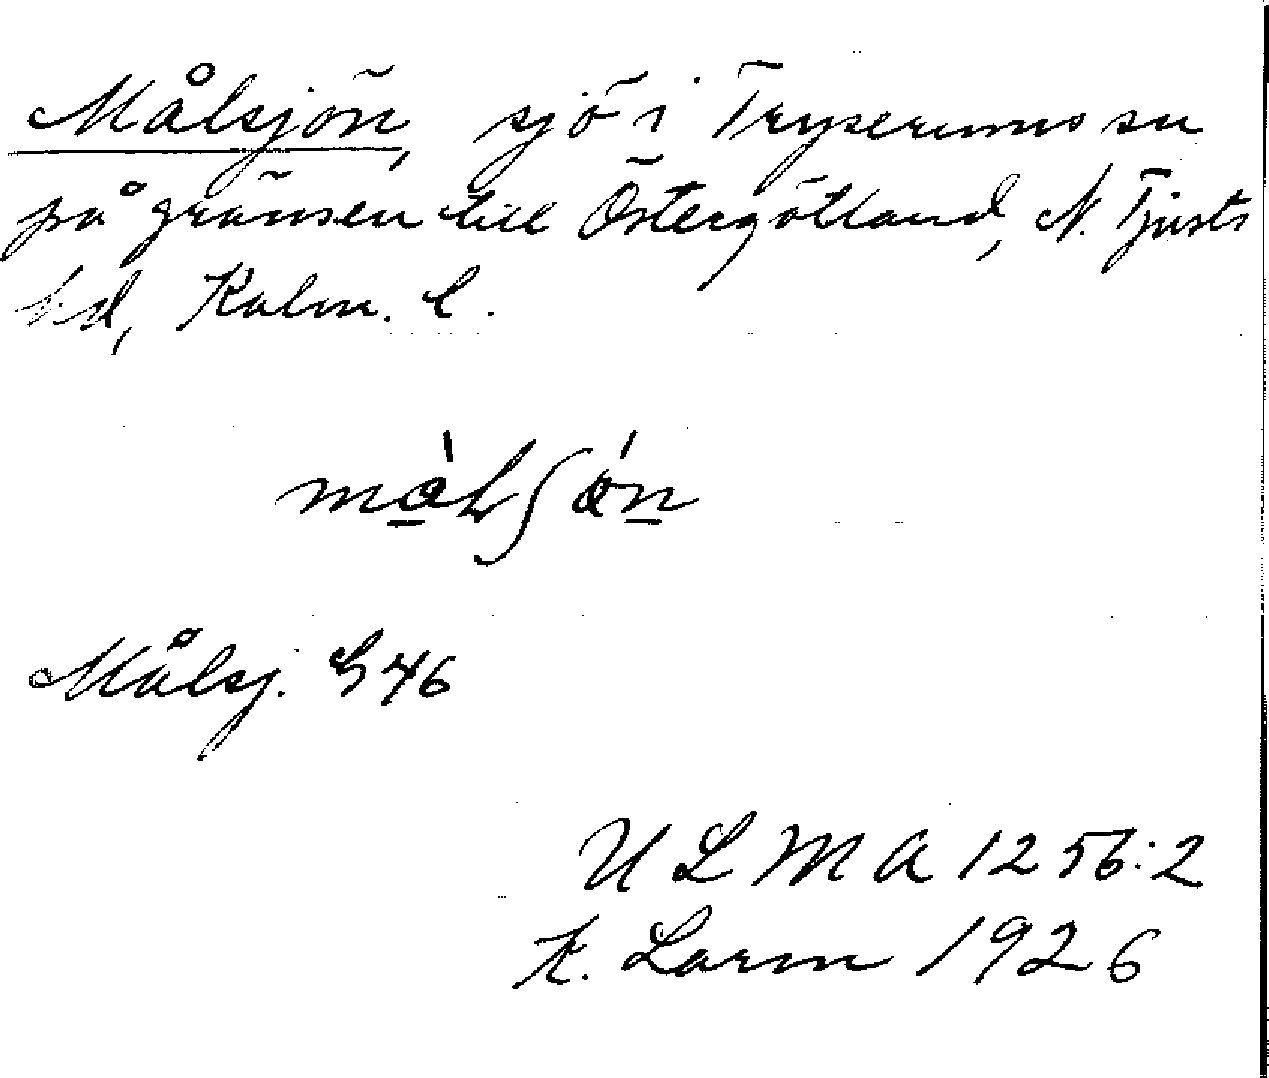 Målsjön, sjö i Tryserums sn
på gränsen till Östergötland, N. Tjusts
hd, Kalm. l.
Målsj. G 46
ULMA 1256:2
K. Larm 1926